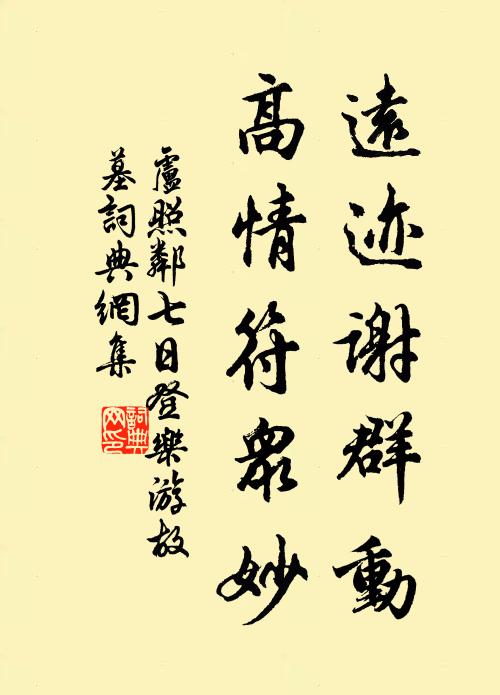 遠迹謝群動
高情符眾妙
盧照鄰七日登樂游故
墓詞典網集
詞典网印